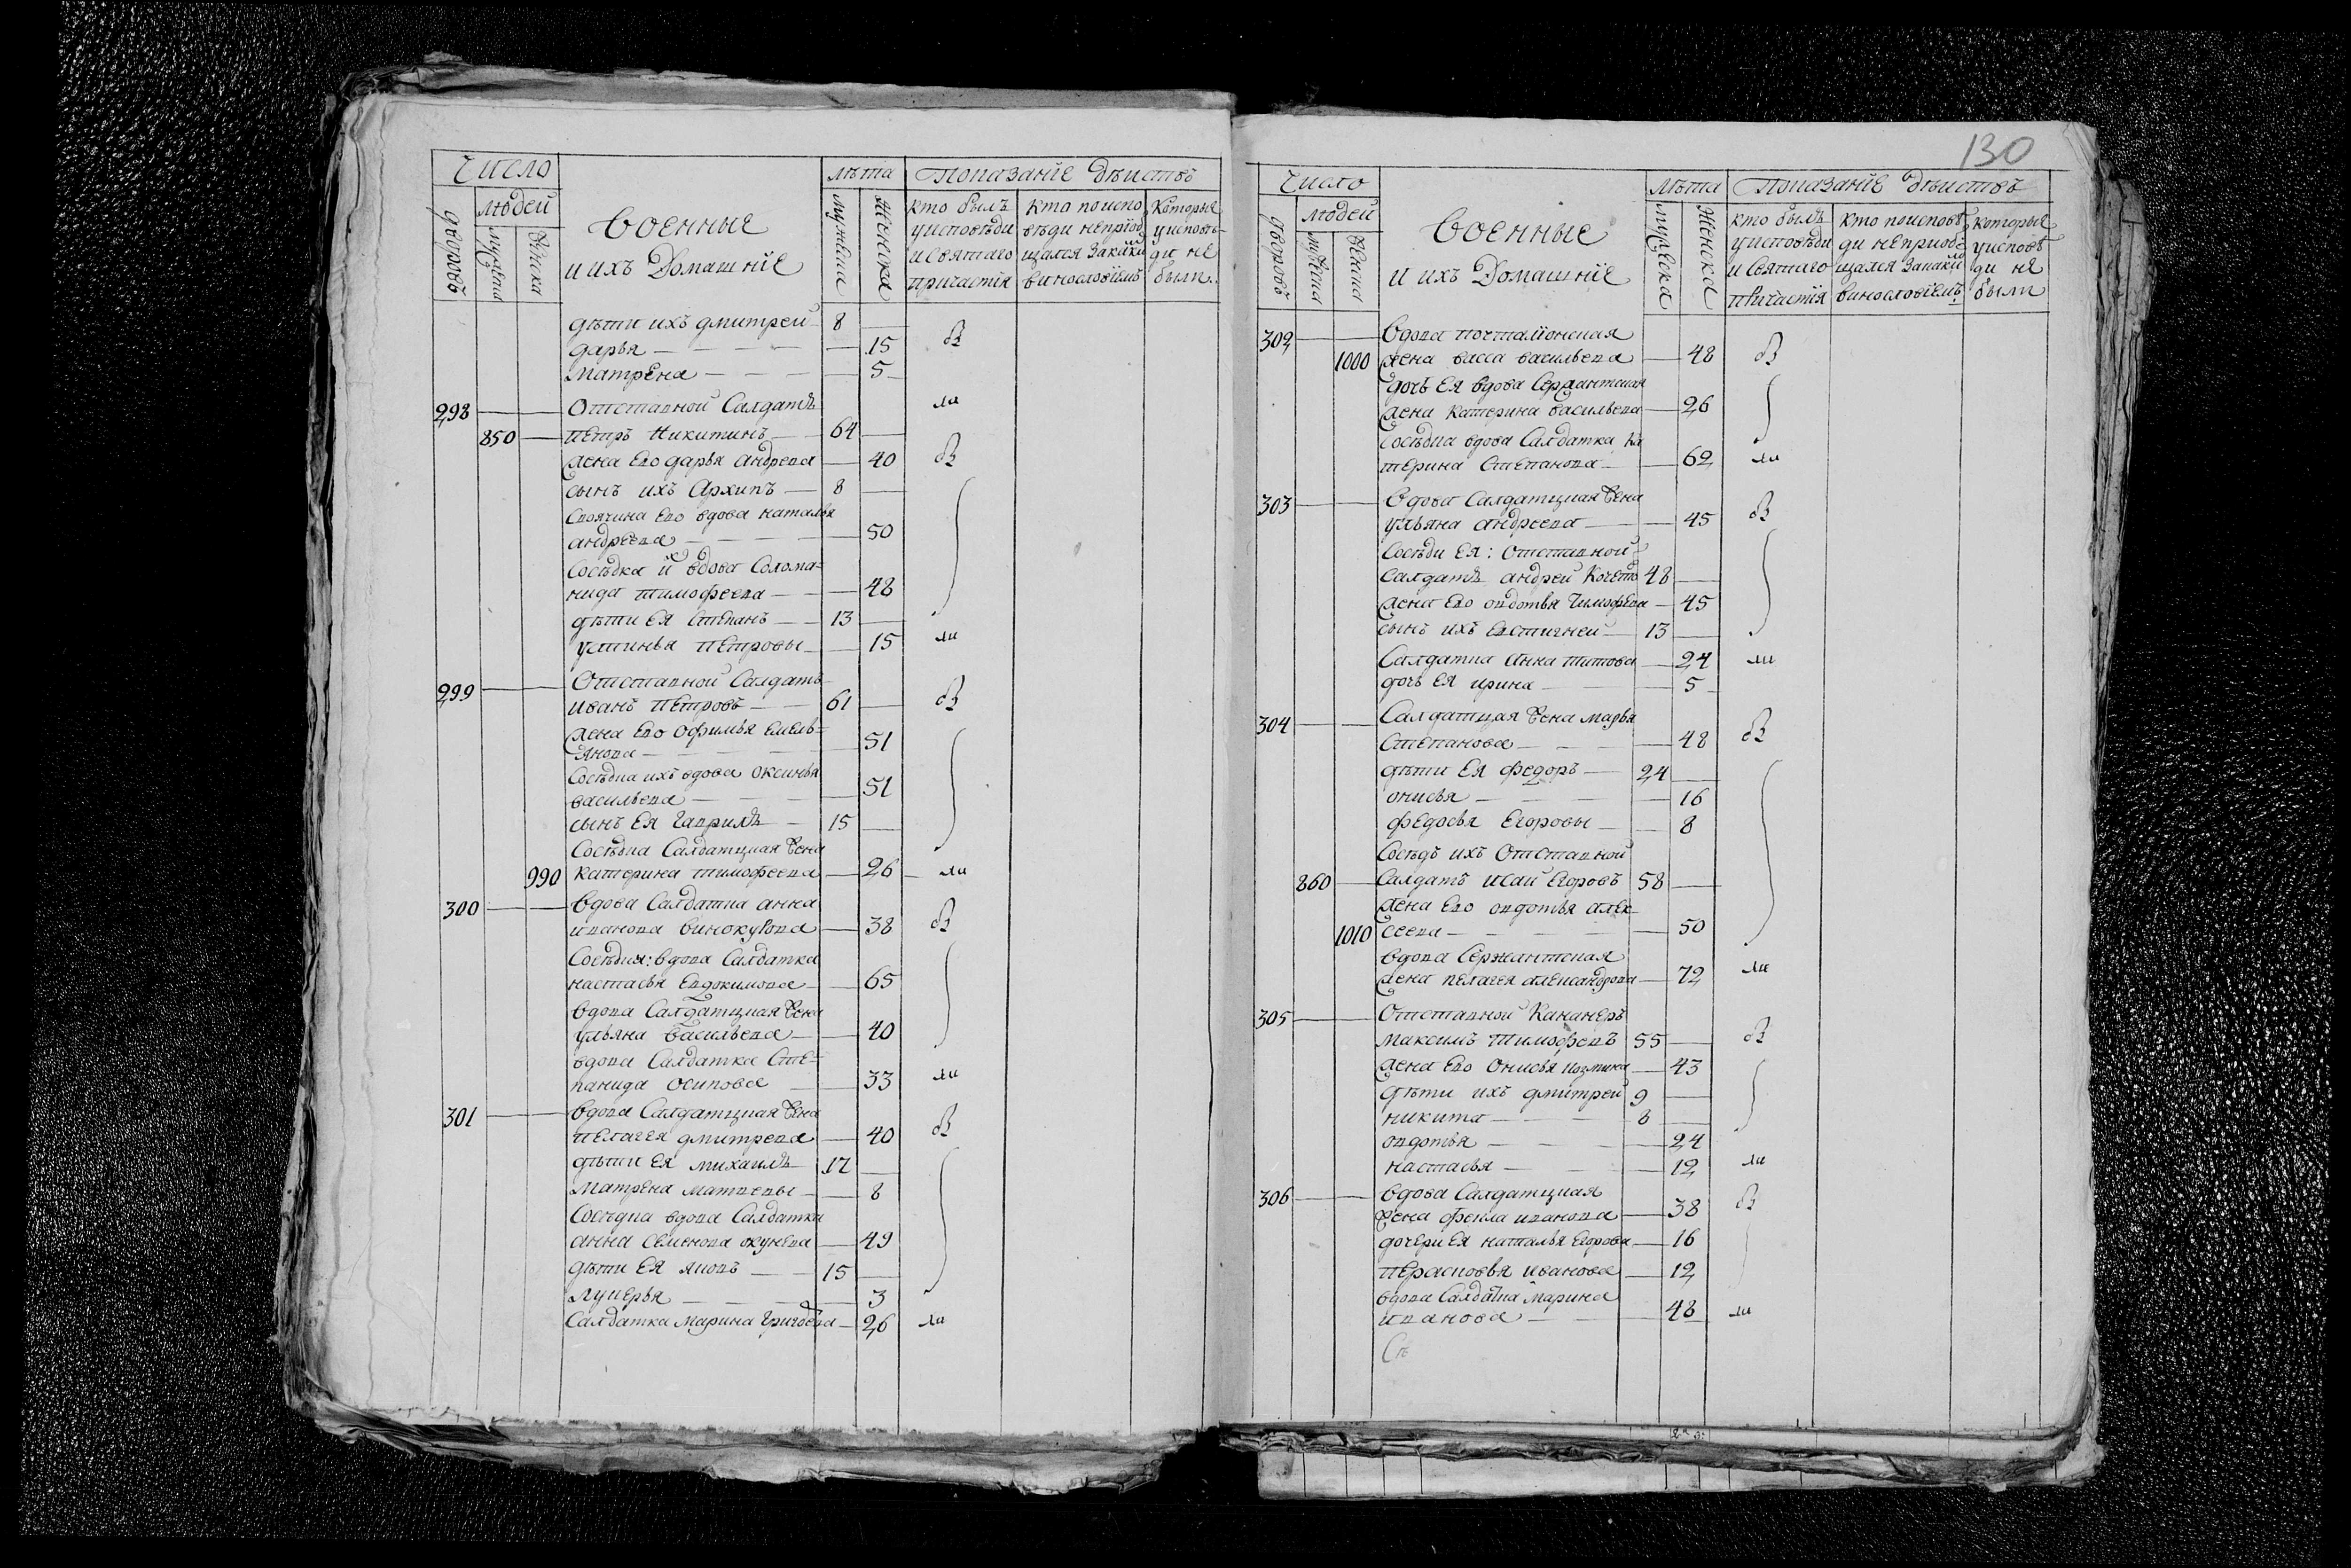 число
людей
дворовъ
мужеска
женска
военные
и ихъ домашнїе
лѣта
мужеска
женска
показанїе дѣиствъ
кто былъ
уисповѣди
и святаго
причастїя
кто поиспо
вѣди неприоб
щался закаким
винословїемъ
которые
уисповѣ
ди не
были
дѣти ихъ дмитреи 8
дарья 15 въ
матрена 5
298 отставной салдатъ ли
850 петръ никитинъ 64
жена ево дарья андрева 40 въ
сынъ ихъ архипъ 8
своячина ево вдова наталья
андреева 50
сосѣдка их вдова солома=
нида тимофеева 48
дѣти ея степанъ 13
устинья петровы 15 ли
299 отставной салдатъ
иванъ петровъ 61 въ
жена ево офимья емель=
янова 51
сосѣдка ихъ вдова оксинья
васильева 51
сынъ ея гаврилъ 15
сосѣдка салдатцкая жена
990 катерина тимофеева 26 ли
300 вдова салдатка анна
иванова винокурова 38 въ
сосѣди ея: вдова салдатка
настасья евдокимова 65
вдова салдатцкая жена
ульяна васильева 40
вдова салдатка сте=
панида осипова 33 ли
301 вдова салдатцкая жена
пелагея дмитрева 40 въ
дѣти ея михаилъ 17
матрена матвевы 8
сосѣдка вдова салдатка
анна семенова окунева 49
дѣти ея яковъ 15
лукерья 3
салдатка марина григорева 26 ли
130
число
людей
дворовъ
мужеска
женска
военные
и ихъ домашнїе
лѣта
мужеска
женска
показанїе дѣиствъ
кто былъ
уисповѣди
и святаго
причастїя
кто поисповѣ
ди неприоб
щался закаким
винословїемъ
которые
уисповѣ
ди не
были
302 вдова почталионская
1000 жена васса васильева 48 въ
дочь ея вдова сержантская
жена катерина васильева 26
сосѣдка вдова салдатка ка
терина степанова 62 ли
303 вдова салдатцкая жена
ульяна андреева 45 въ
сосѣди ея: отставной
салдатъ андрей кочетов 48
жена ево овдотья тимофева 45
сынъ ихъ евстигнеи 13
салдатка анна титова 24 ли
дочь ея ирина 5
304 салдатцкая жена марья
степанова 48 въ
дѣти ея федоръ 24
онисья 16
федосья егоровы 8
сосѣдъ ихъ отставной
860 салдатъ исаи егоровъ 58
жена ево овдотья алек
1010 сеева 50
вдова сержантская
жена пелагея александрова 72 ли
305 отставной кананеръ
максимъ тимофевъ 55 въ
жена ево онисья козмина 43
дѣти ихъ дмитреи 9
никита 8
овдотья 24
настасья 12 ли
306 вдова салдатцкая
жена фекла иванова 38 въ
дочери ея наталья егорова 16
перасковья иванова 12
вдова салдатка марина
иванова 48 ли